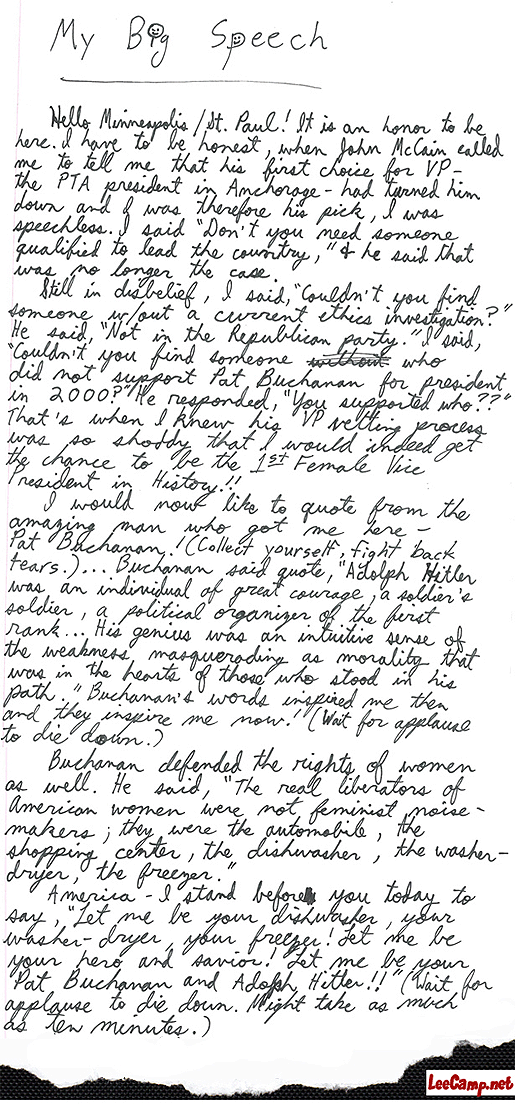 My Big Speech
Hello Minneapolis/St. Paul! It is an honor to be
here. I have to be honest, when John McCain called
me to tell me that his first choice for VP-
the PTA president in Anchorage - had turned him
down and I was therefore his pick, I was
speechless. I said "Don't you need someone
qualified to lead the country," & he said that
was no longer the case.
Still in disbelief, I said, "Couldn't you find
someone w/out a current ethics investigation?"
He said, "Not in the Republican party." I said,
"Couldn't you find someone without who
did not support Pat Buchanan for president
in 2000?" He responded, "You supported who??"
That's when I knew his VP vetting process
was so shoddy that I would indeed get
the chance to be the 1st Female Vice
President in History!!
I would now like to quote from the
amazing man who got me here -
Pat Buchanan! (Collect yourself, fight back
tears.)... Buchanan said quote, "Adolph Hitler
was an individual of great courage, a soldier's
soldier, a political organizer of the first
rank... His genius was an intuitive sense of
the weakness masquerading as morality that
was in the hearts of those who stood in his
path." Buchanan's words inspired me then
and they inspire me now. (Wait for applause
to die down.)
Buchanan defended the rights of women
as well. He said, "The real liberators of
American women were not feminist noise-
makers; they were the automobile, the
shopping center, the dishwasher, the washer-
dryer, the freezer."
America - I stand before you today to
say, "Let me be your dishwasher, your
washer-dryer, your freezer! Let me be
your hero and savior! Let me be your
Pat Buchanan and Adolph Hitler!!" (Wait for
applause to die down. Might take as much
as ten minutes.)
LeeCamp.net